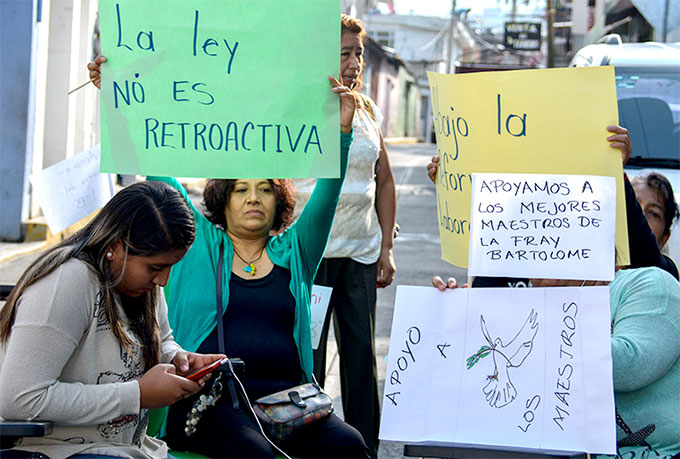 La ley
NO ES
RETROACTIVA
abajo la
labor
APOYAMOS A
LOS MEJORES
MAESTROS DE
LA FRAY
BARTOLOME
APOYO
A
LOS
MAESTROS